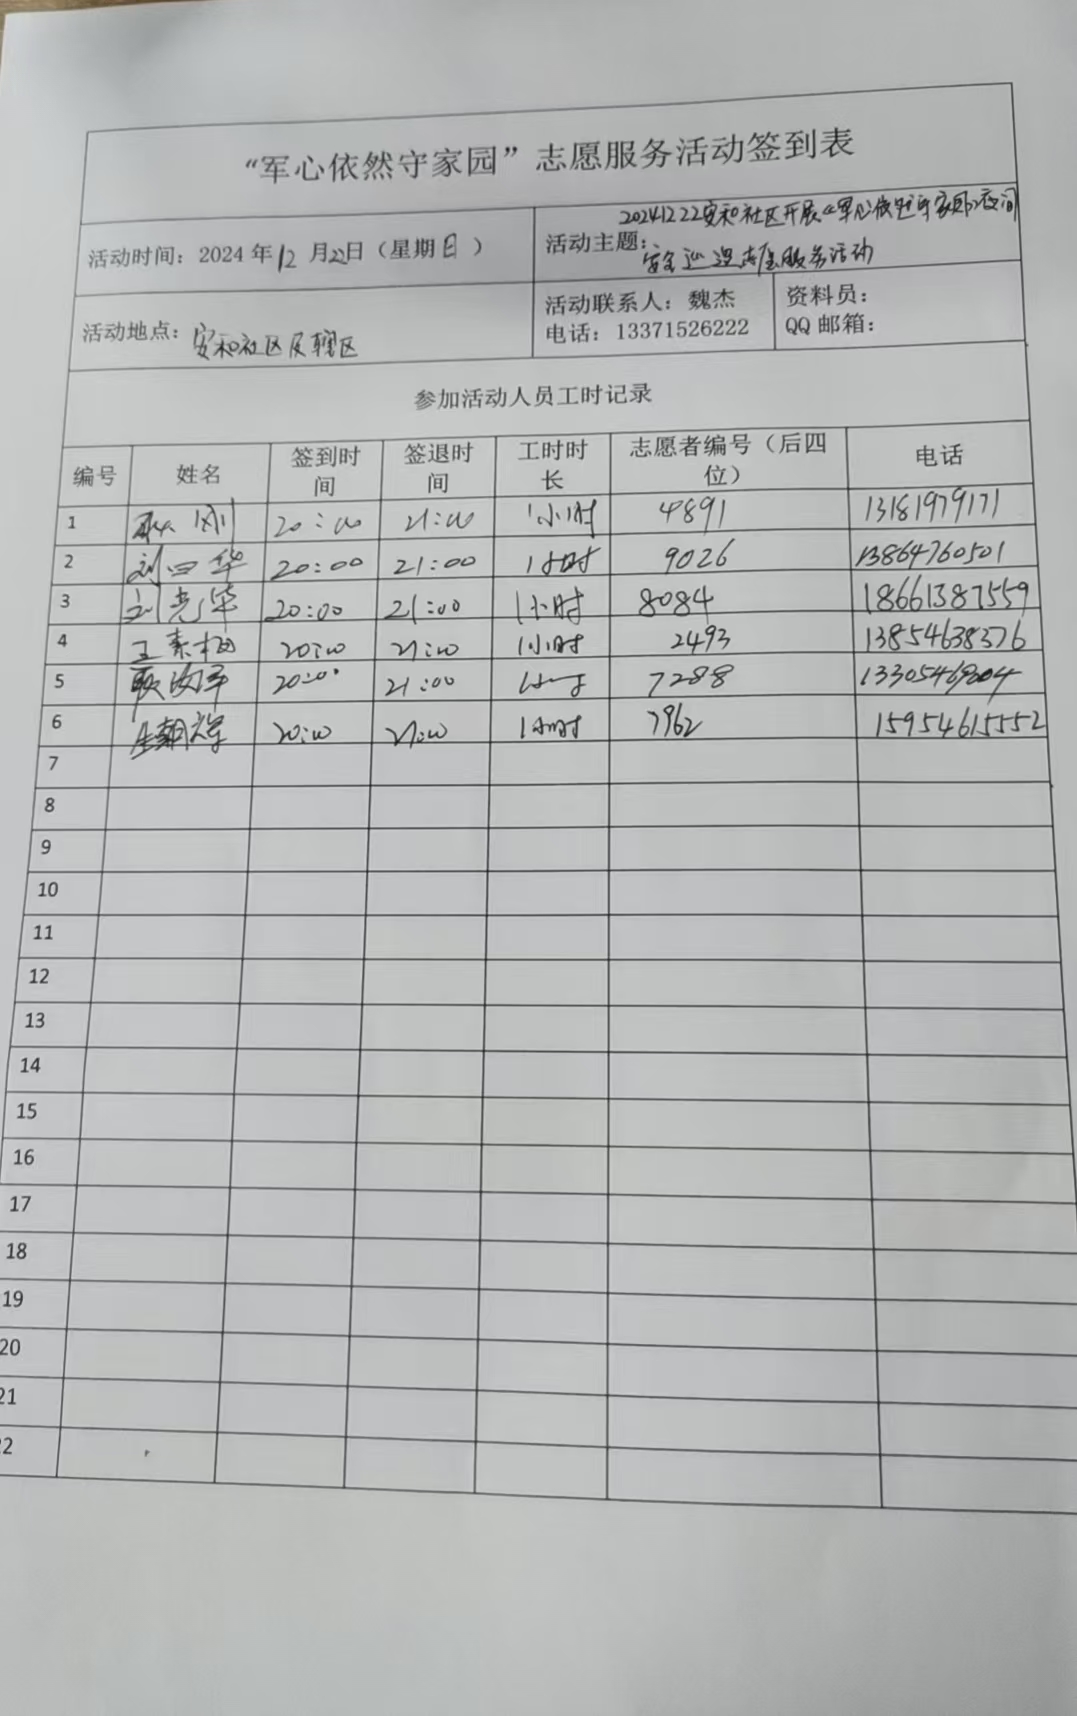 “军心依然守家园”志愿服务活动签到表
活动时间：2024年12月22日（星期日）
活动主题：20241222安和社区开展《军心依然守家园》夜间
安全巡逻志愿服务活动
活动地点：安和社区及辖区
活动联系人：魏杰
电话：13371526222
资料员：
QQ邮箱：
参加活动人员工时记录
编号 姓名 签到时间 签退时间 工时时长 志愿者编号（后四位） 电话
1 刚 20:00 21:00 1小时 4891 13181979171
2 刘四华 20:00 21:00 1小时 9026 13864760501
3 刘光华 20:00 21:00 1小时 8084 18661387559
4 王素梅 20:00 21:00 1小时 2493 13854638376
5 20:00 21:00 1小时 7288 13305469204
6 生朝辉 20:00 21:00 1小时 7962 15954615552
7
8
9
10
11
12
13
14
15
16
17
18
19
20
21
22